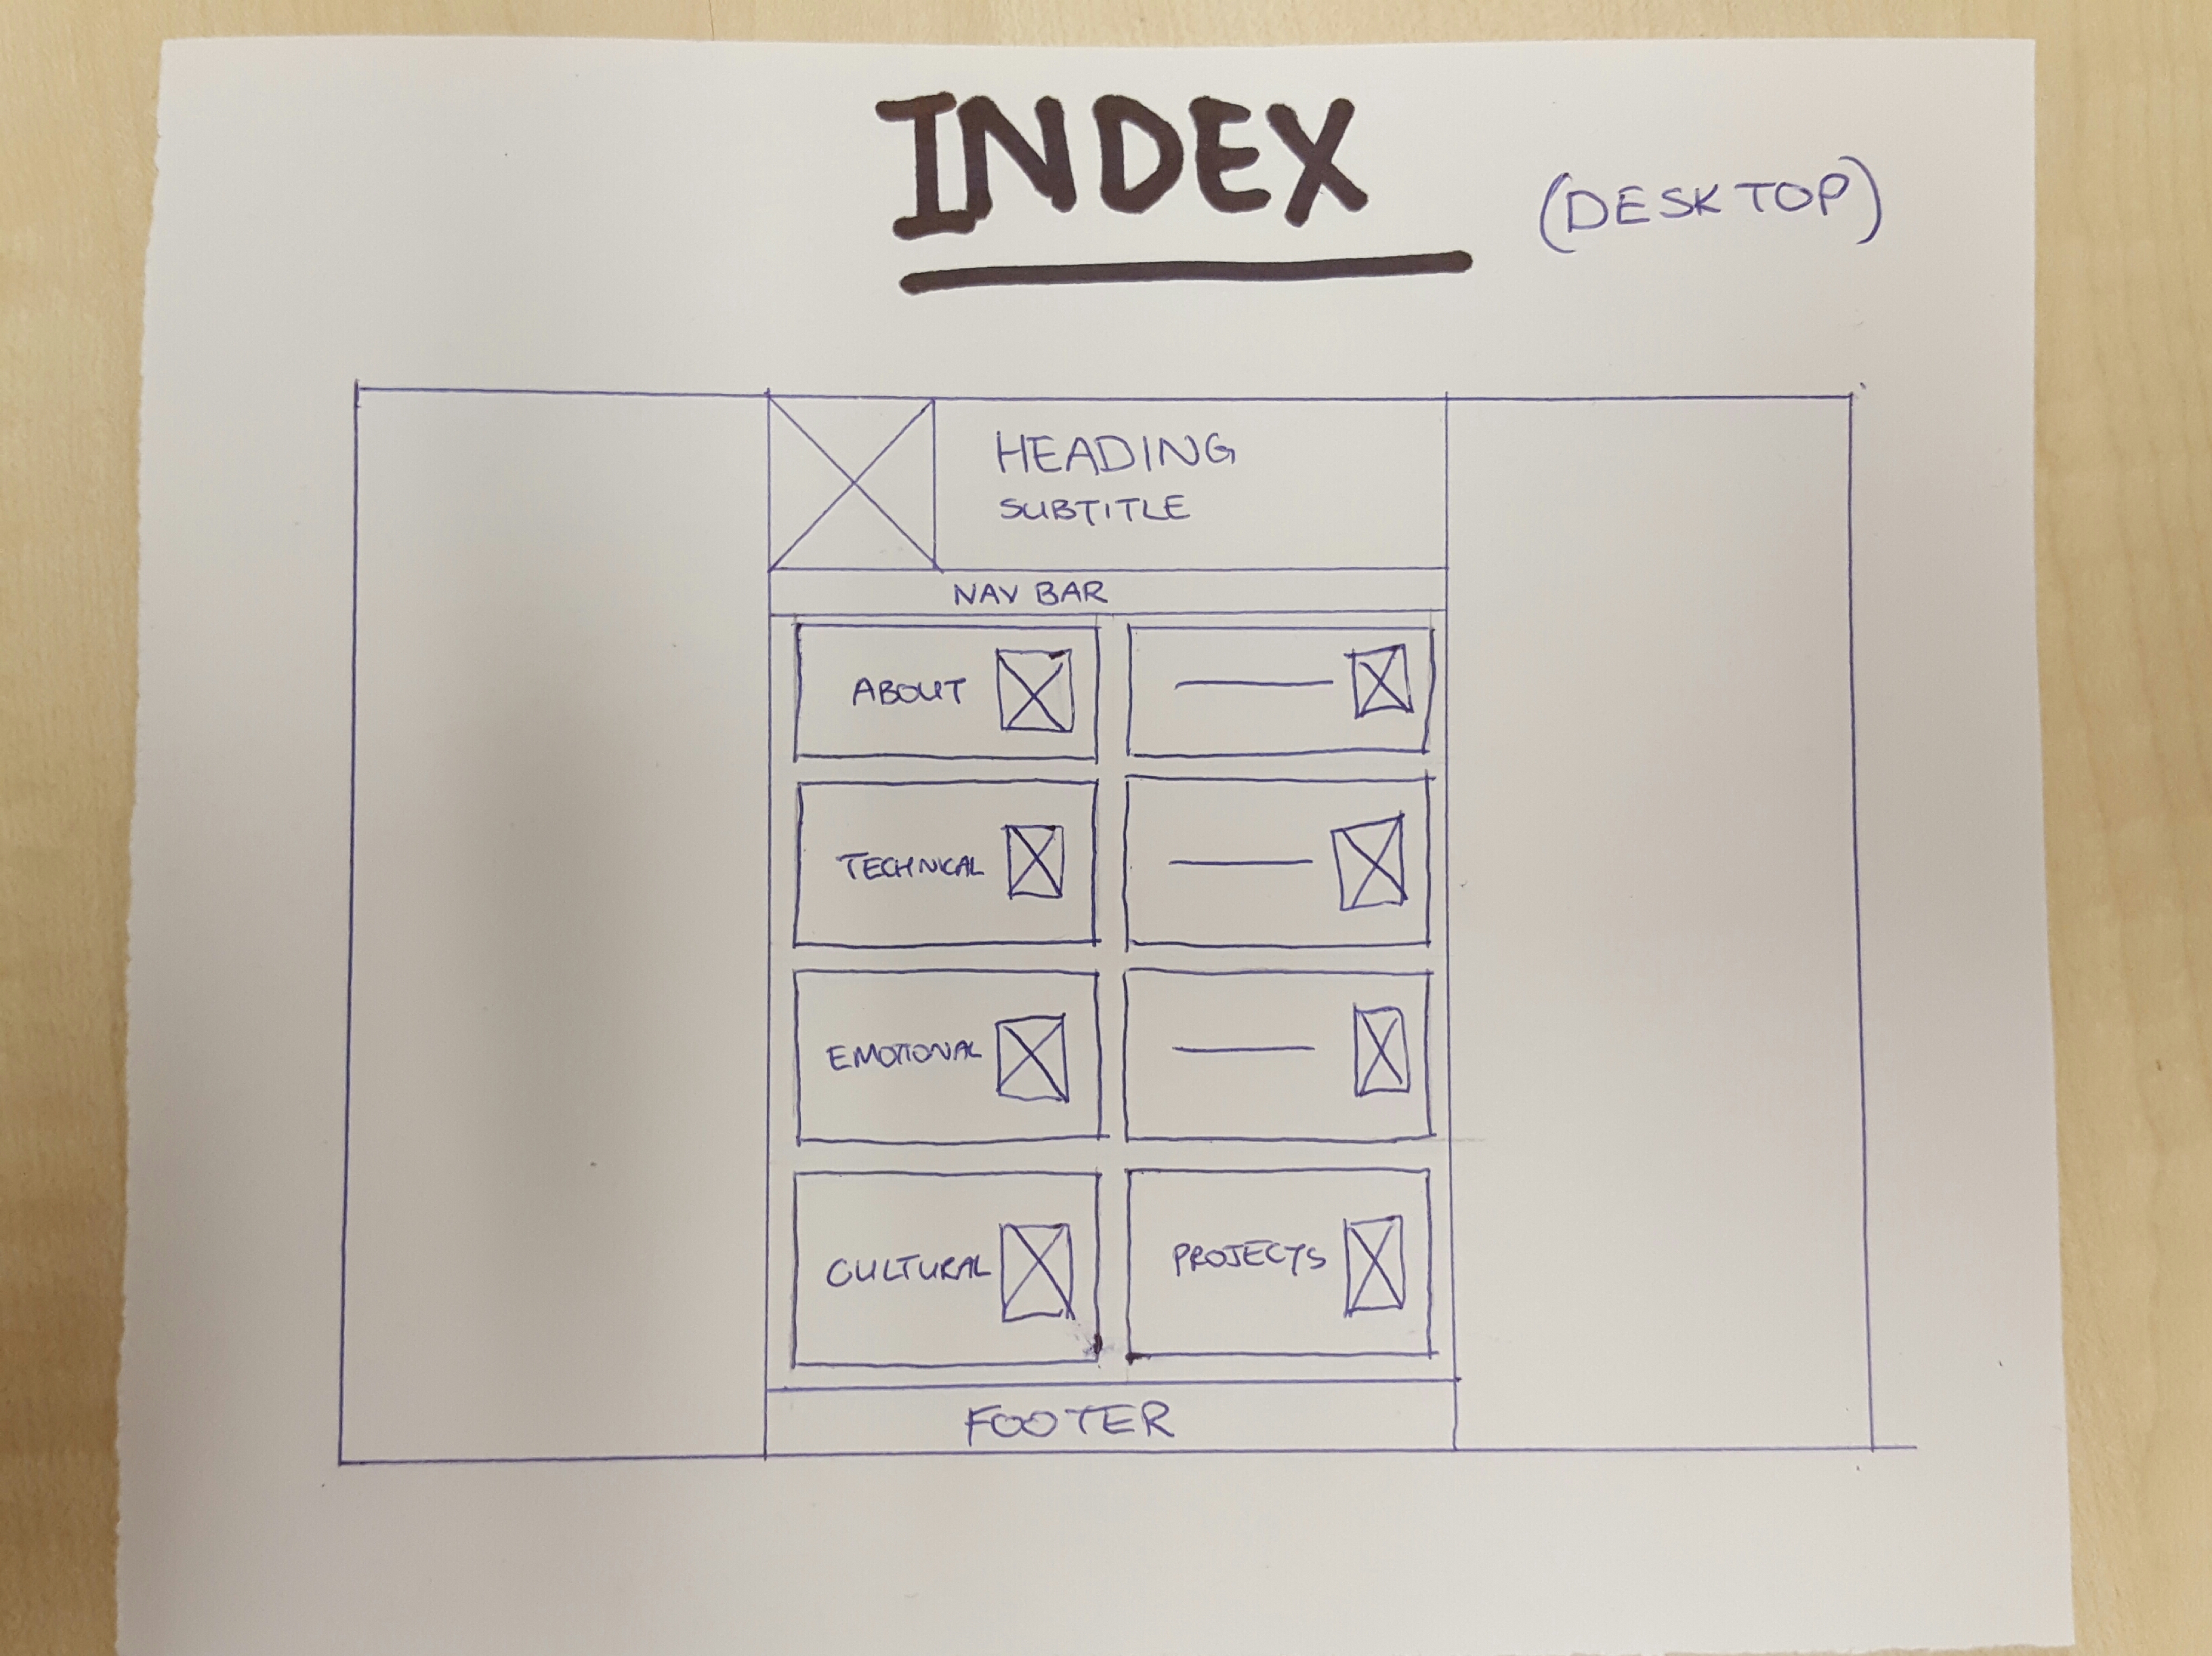 INDEX
(DESKTOP)
HEADING
SUBTITLE
NAV BAR
ABOUT
TECHNICAL
EMOTIONAL
CULTURAL
PROJECTS
FOOTER